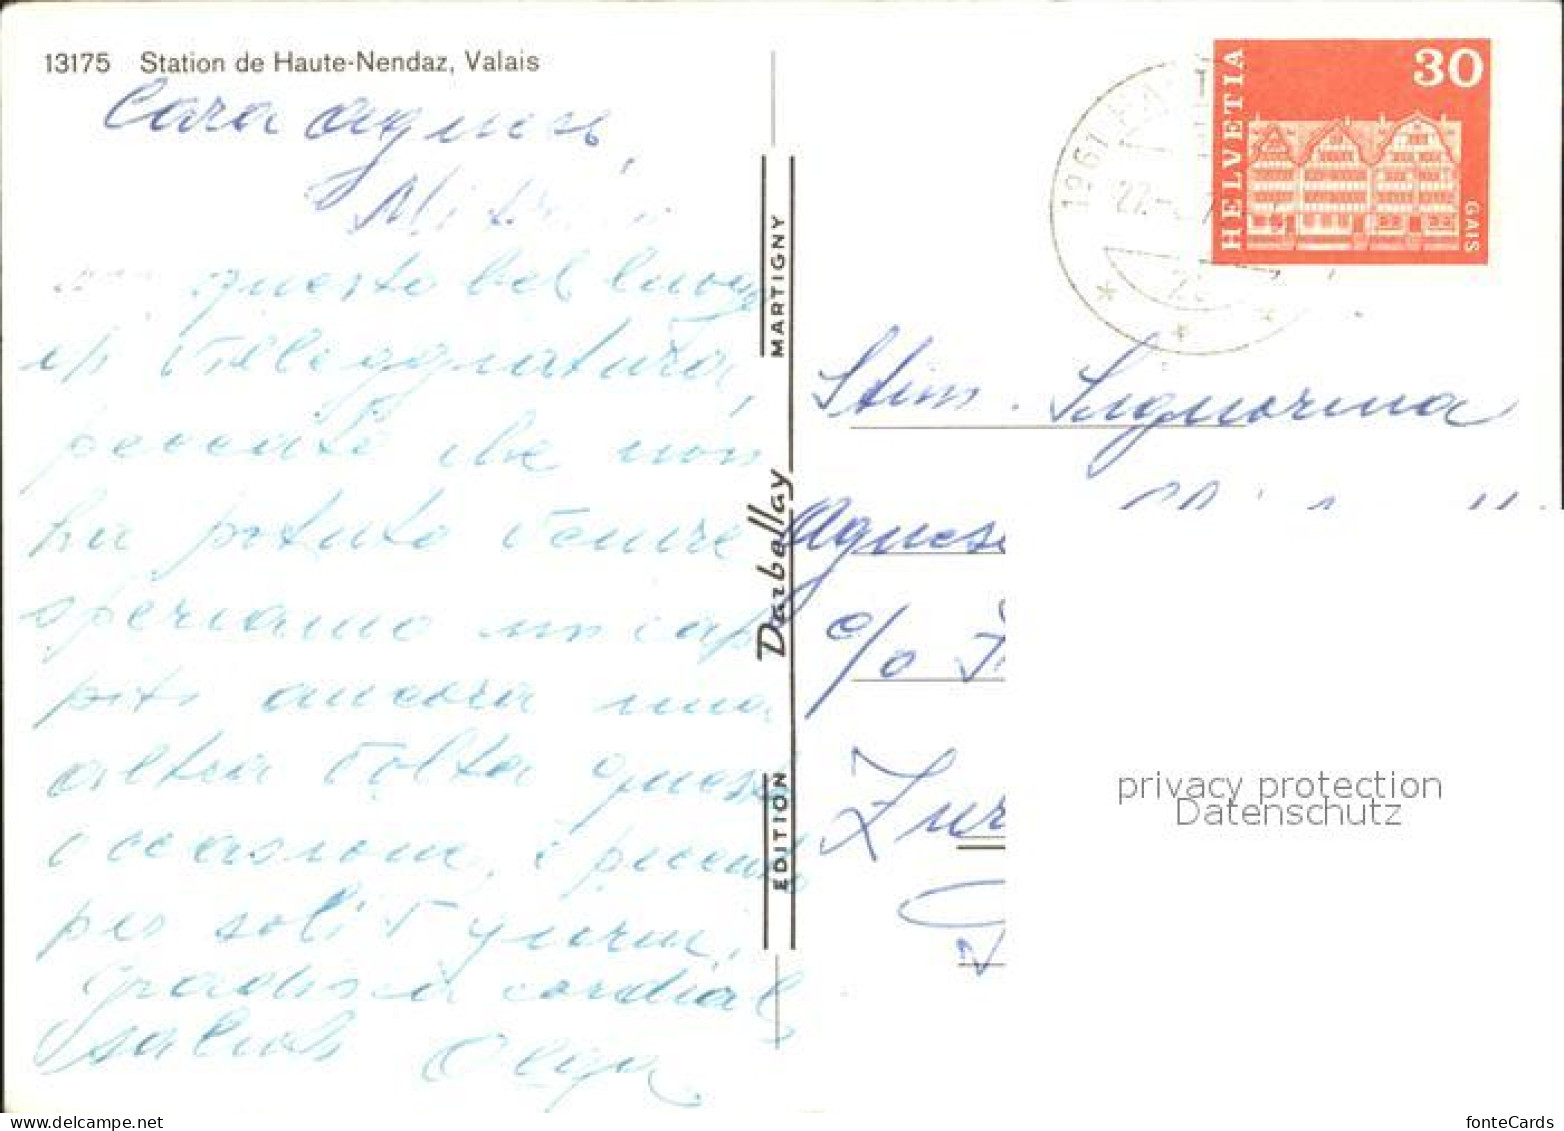 13175 Station de Haute-Nendaz, Valais
Cara Agnese,
Mi
questo bel luogo
villeggiatura,
peccato che non
ha potuto venire
speriamo cap
piti ancora una
altra volta quest
occasione, è peccato
per soli giorni,
gradisca cordiali
saluti Olga
EDITION Darbellay MARTIGNY
1961
HELVETIA
30
GAIS
Stim. Signorina
Agnese
c/o
Zur
privacy protection
Datenschutz
www.delcampe.net
fonteCards